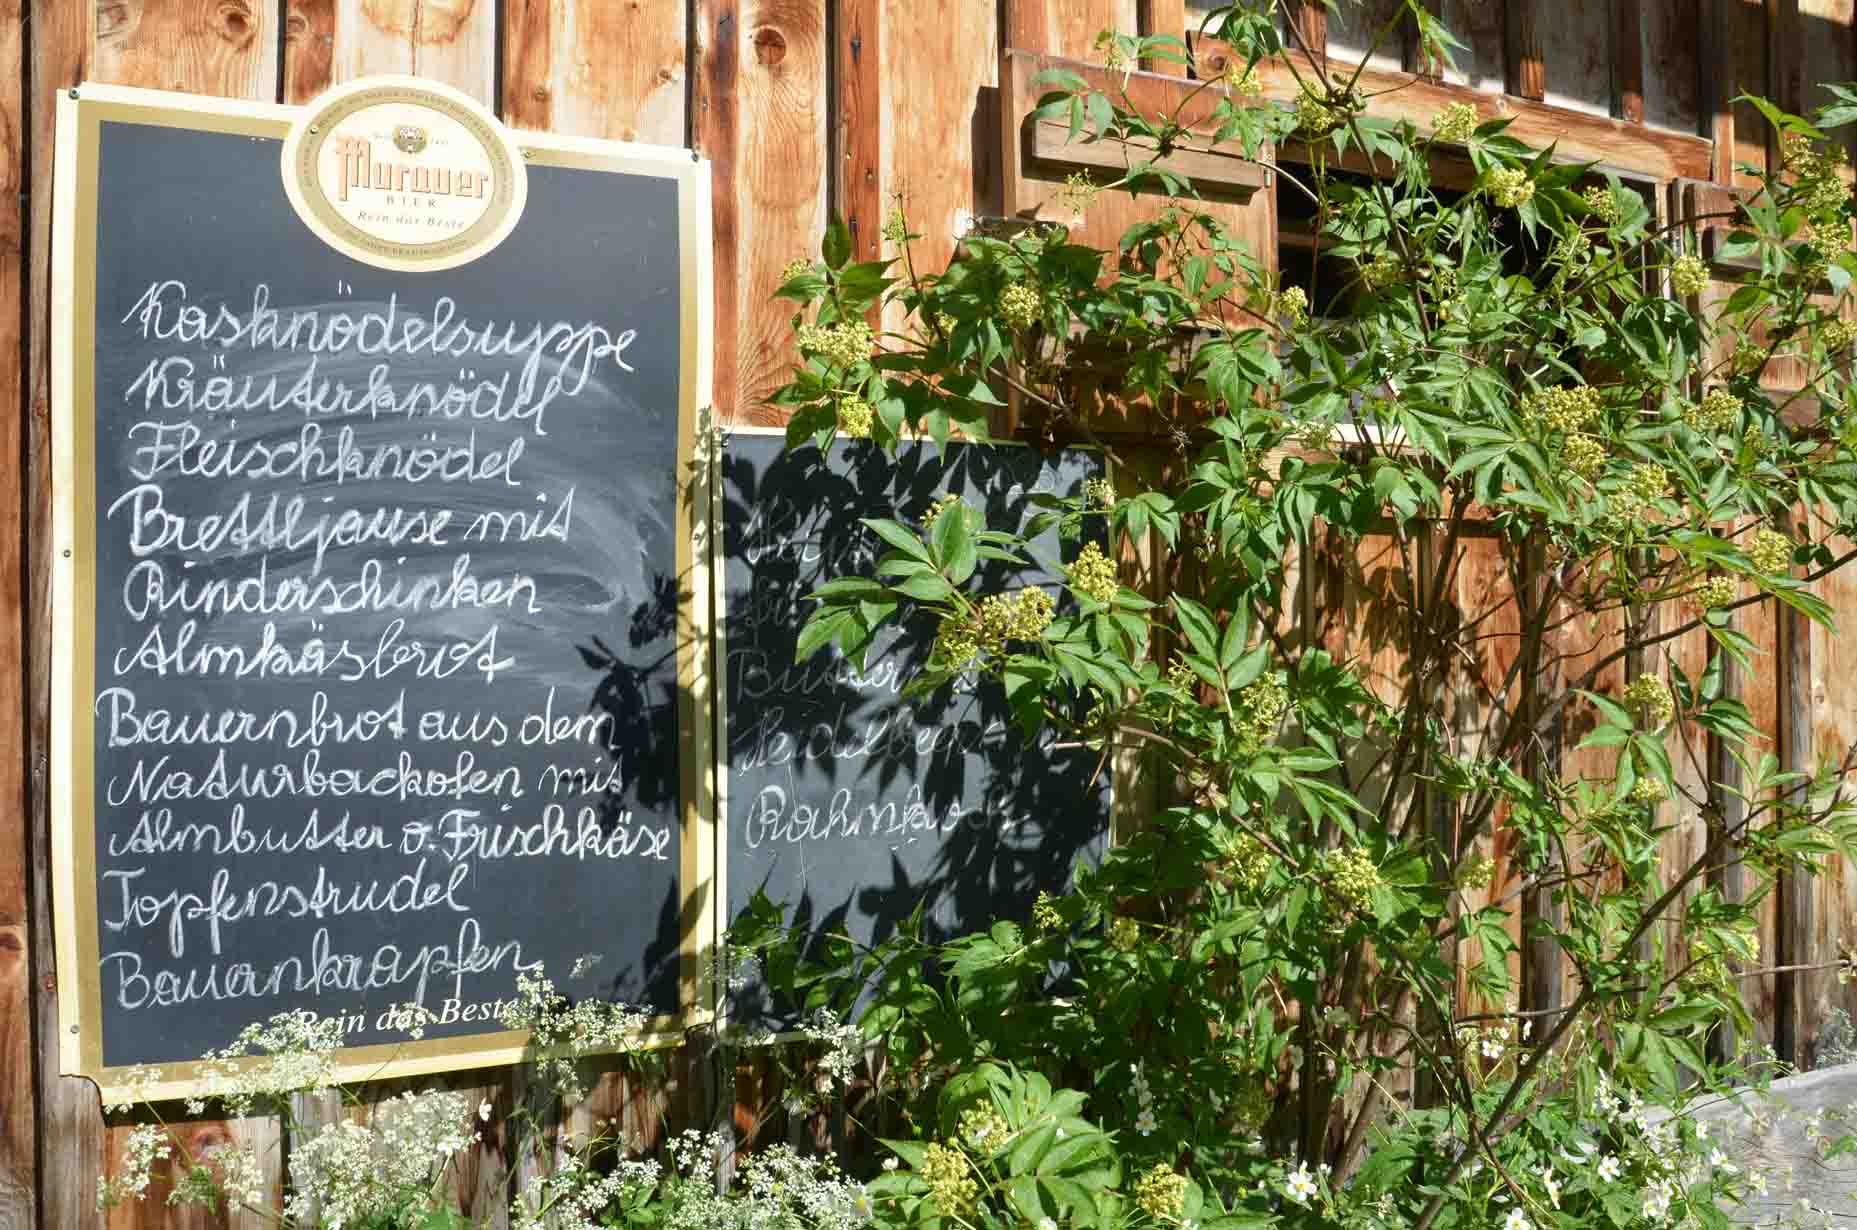 Murauer
BIER
Rein das Beste
Kasknödelsuppe
Kräuterknödel
Fleischknödel
Brettljause mit
Rinderschinken
Almkäsbrot
Bauernbrot aus dem
Naturbackofen mit
Almbutter o. Frischkäse
Topfenstrudel
Bauernkrapfen
Rein das Beste
Rahmkoch